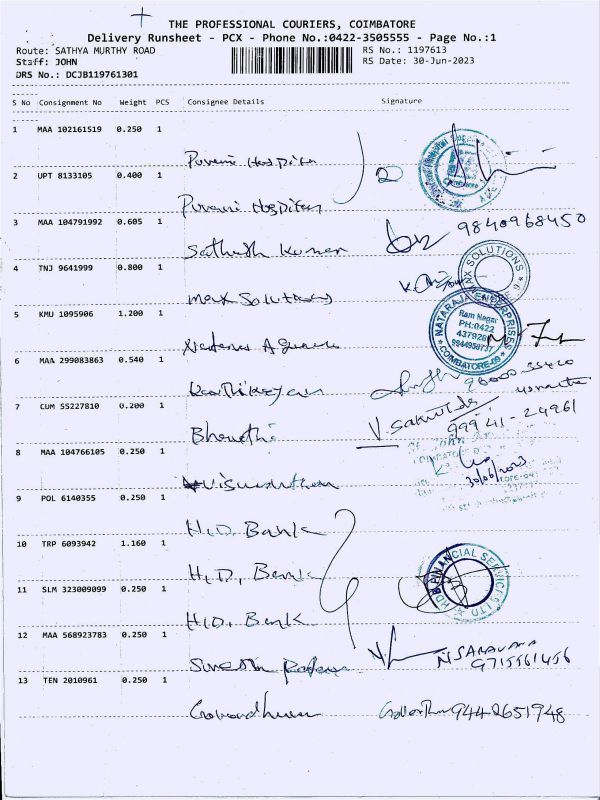 THE PROFESSIONAL COURIERS, COIMBATORE
Delivery Runsheet - PCX - Phone No.:0422-3505555 - Page No.:1
Route: SATHYA MURTHY ROAD
RS No.: 1197613
Staff: JOHN
RS Date: 30-Jun-2023
DRS No.: DCJB119761301
S No Consignment No Weight PCS Consignee Details Signature
1 MAA 102161519 0.250 1
Puvani Hospital
2 UPT 8133105 0.400 1
Puvani Hospital
3 MAA 104791992 0.605 1
9840968450
Sathish Kumar
4 TNJ 9641999 0.800 1
SOLUTIONS
Max Solutions
5 KMU 1095906 1.200 1
NATARAJA ENTERPRISES
Ram Nagar
PH:0422
COIMBATORE-09
6 MAA 299083863 0.540 1
Karthikeyan
7 CUM 55227810 0.200 1
V
99941-24961
Bharathi
8 MAA 104766105 0.250 1
30/06/2023
Viswanathan
9 POL 6140355 0.250 1
H.D. Bank
10 TRP 6093942 1.160 1
H.D. Bank
HDB FINANCIAL SERVICES LTD
11 SLM 323009099 0.250 1
H.D. Bank
12 MAA 568923783 0.250 1
N SARAVANA
9715561456
Suresh
13 TEN 2010961 0.250 1
Govardhan
9442651948